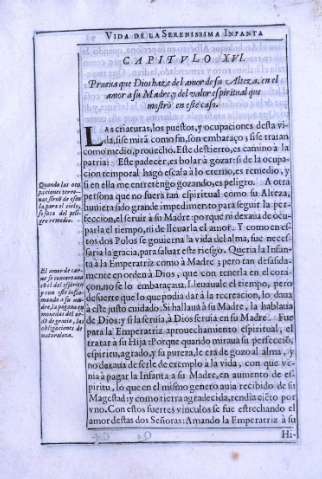 VIDA DE LA SERENISSIMA INFANTA
CAPITVLO XVI.
Prueua que Dios haze del amor de su Alteza, en el
amor à su Madre, y del valor espiritual que
mostrò en este caso.
LAs criaturas, los puestos, y ocupaciones desta vi-
da, si se mira como fin, son embaraço; si se tratan
como medio, prouecho. Este destierro, es camino à la
patria: Este padecer, es bolar à gozar: si de la ocupa-
cion temporal hago escala à lo eterno, es remedio, y
si en ella me entretengo gozando, es peligro. A otra
persona que no fuera tan espiritual como su Alteza,
huuiera sido grande impedimento para seguir la per-
feccion, el seruir à su Madre: porque ni dexaua de ocu-
parla el tiempo, ni de lleuarla el amor. Y como en es-
tos dos Polos se gouierna la vida del alma, fue neces-
saria la gracia, para saluar este riesgo. Queria la Infan-
ta à la Emperatriz como à Madre; pero tan desasida-
mente en orden à Dios, que con tenerla en el cora-
çon, no se lo embaraçaua. Lleuauale el tiempo, pero
de suerte que lo que podia dar à la recreacion, lo daua
à este justo cuidado. Si hallaua à su Madre, la hablaua
de Dios; y si la seruia, à Dios seruia en su Madre. Fue
para la Emperatriz aprouechamiento espiritual, el
tratar à su Hija: Porque quando miraua su perfeccion,
espiritu, agrado, y su pureza, le era de gozo al alma, y
no dexaua de serle de exemplo à la vida, con que ve-
nia à pagar la Infanta à su Madre, en aumento de es-
piritu, lo que en el mismo genero auia recibido de su
Magestad: y como tierra agradecida, rendia ciẽto por
vno. Con estos fuertes vinculos se fue estrechando el
amor destas dos Señoras: Amando la Emperatriz à su
Hi-
Quando las ocu
paciones terre-
nas, siruẽ de esca
la para el cielo,
se saca del pe-
ligro remedio.
El amor de car-
ne